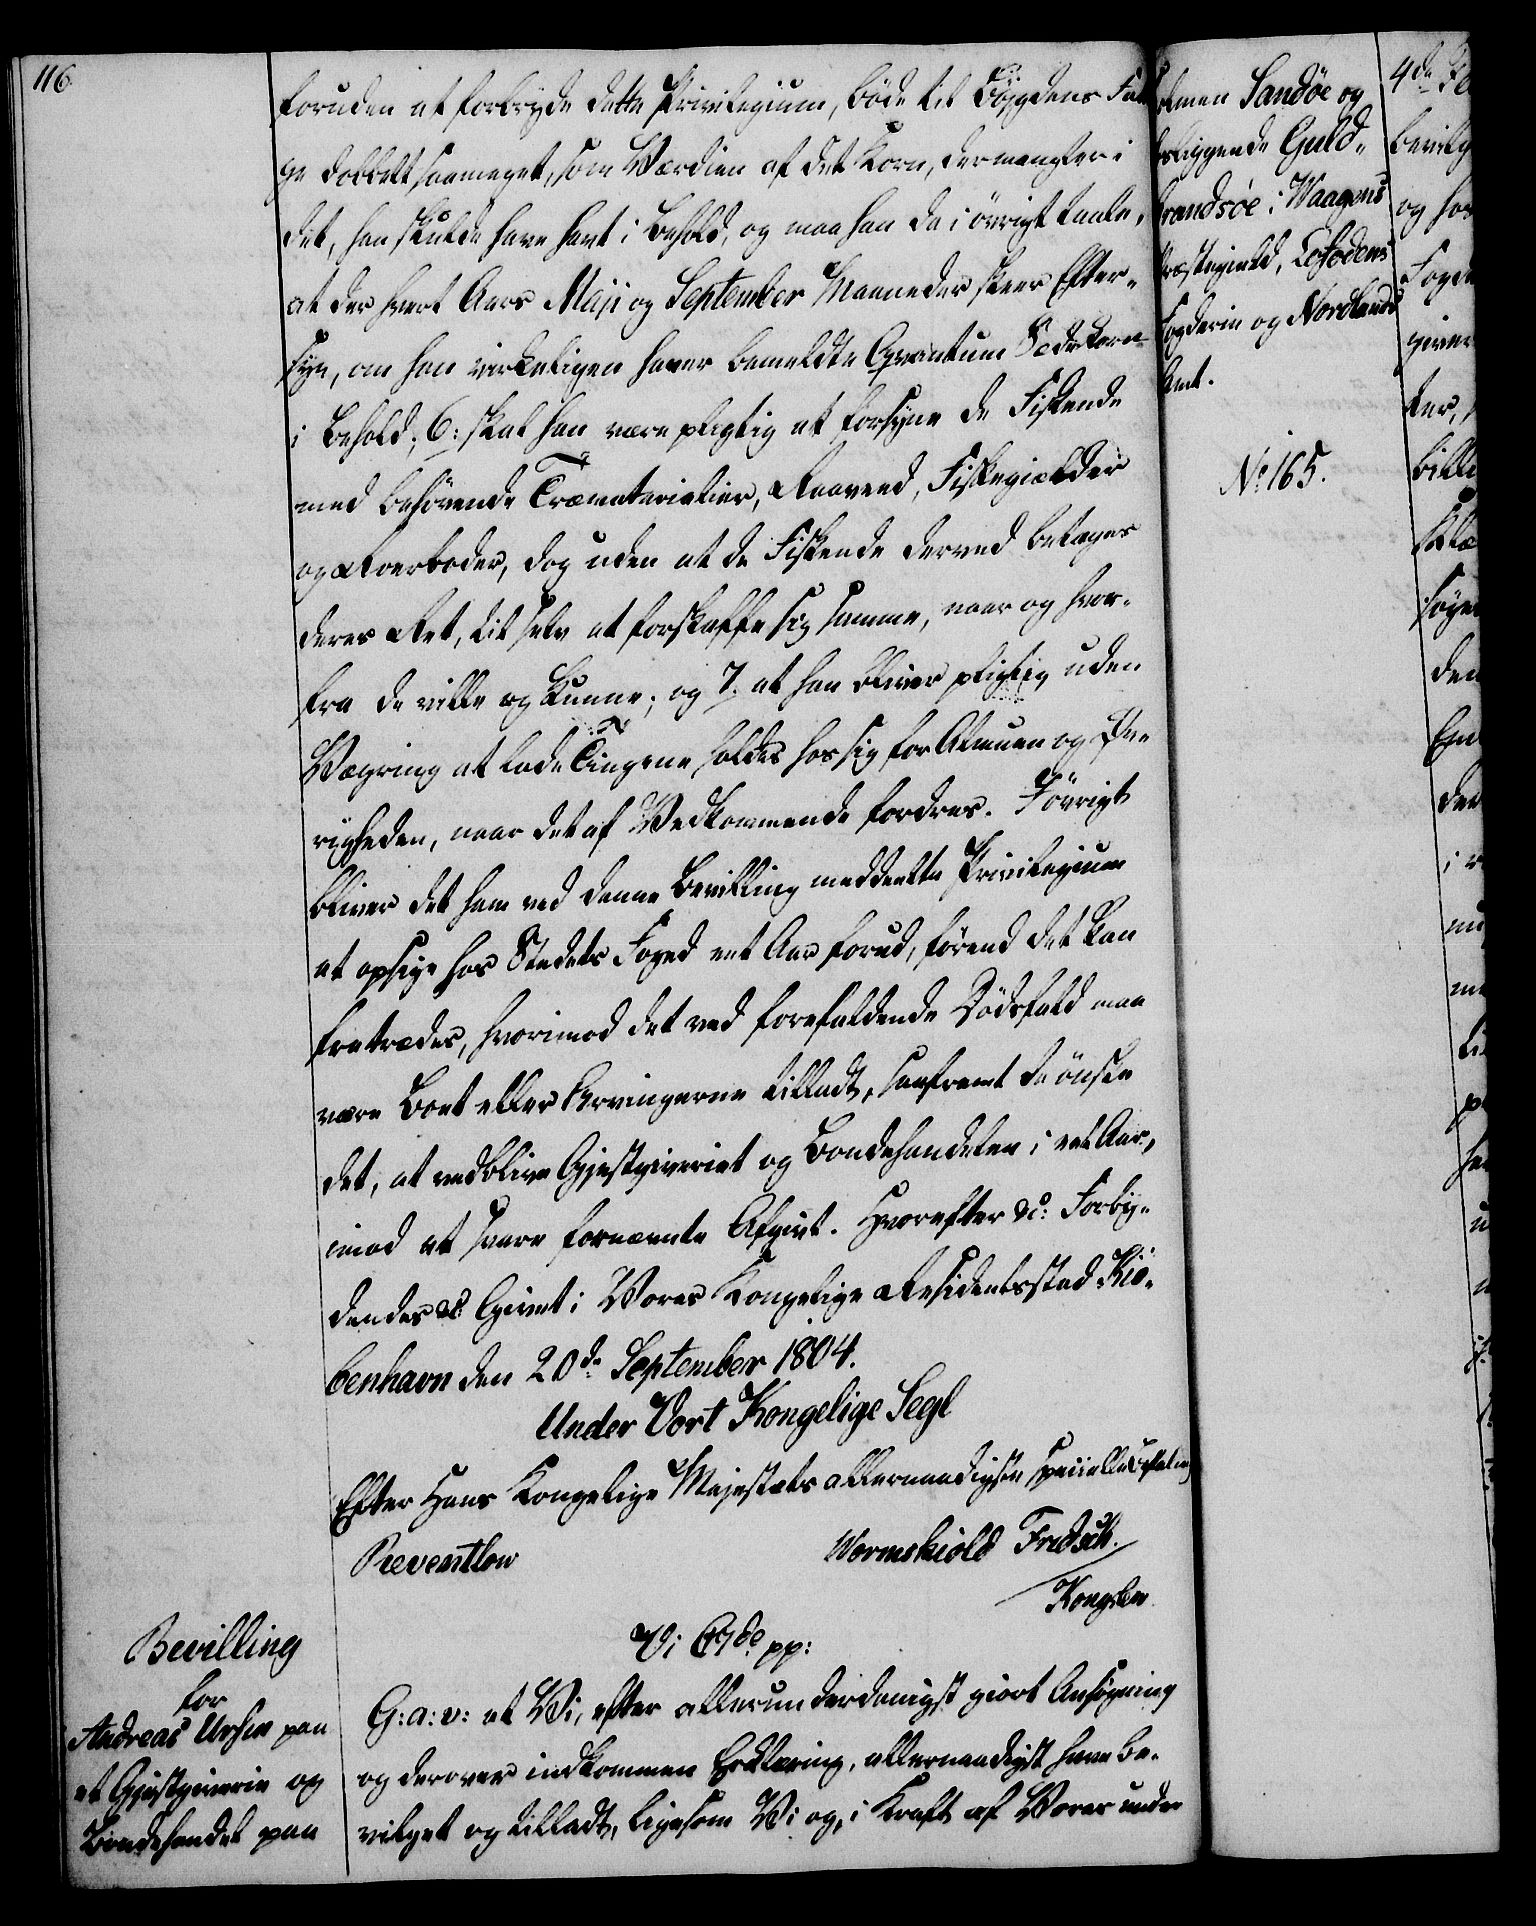 116
foruden at forbryde dette Privilegium, bøde til Bøygdens Fat-
ge dobbelt saameget, som Værdien af det Korn, der mangler i
det, han skulde have havt i Behold, og maa han da i øvrigt taale,
at der hvert Aars Maji og September Maaneder skeer Efter-
syn, om han virkeligen haver bemeldte Qvantum Sædekorn
i Behold; 6: skal han være pligtig at forsyne de Fiskende
med behøvende Træmaterialier, Raaved, Fiskegiælder
og Roerboder, dog uden at de Fiskende derved betages
deres Ret, til selv at forskaffe sig samme, naar og hvor-
fra de ville og kunne; og 7. at han bliver pligtig uden
Vægring at lade Tingene holdes hos sig for Almuen og Øv-
righeden, naar det af Vedkommende fordres. Iøvrigt
bliver det ham ved denne Bevilling meddeelte Privilegium
at opsige hos Stedets Foged eet Aar forud, førend det kan
fratrædes, hvorimod det ved forefaldende Dødsfald maa
være Boet eller Arvingerne tilladt, saafremt de ønske
det, at vedblive Gjæstgiveriet og Bondehandelen i eet Aar,
imod at svare fornævnte Afgivt. Hvorefter &c: Forby-
dendes &c: Givet i Vores Kongelige Residentsstad Kiø-
benhavn den 20de September 1804.
Under Vort Kongelige Segl
Efter Hans Kongelige Majestæts allernaadigste specielle Befaling
Reventlow
Wormskiold Fredsch.
Kongslew
Bevilling
for
Andreas Urhen paa
et Gjæstgiverie og
Bondehandel paa
Vi C7de pp:
G: a: v: at Vi, efter allerunderdanigst giort Ansøgning
og derover indkommen Erklæring, allernaadigst have be-
vilget og tilladt, ligesom Vi og, i Kraft af Vores under
olmen Sandøe og
sliggende Guld-
brandsøe i Waagens
Præstegield, Lofodens
Fogderie og Nordlands
Amt.
No 165.
4de
bevilg
og hos
Foged
giver
ter,
bille
søge
den
der